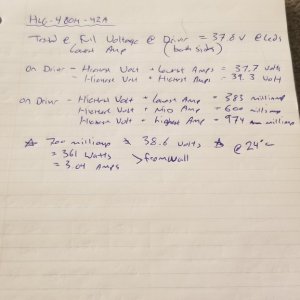 HLG-480H-42A
Tested @ Full Voltage @ Driver = 37.6 V @ Leds
Lowest Amp (both sides)
on Driver - Highest Volt + Lowest Amps = 37.7 volts
- Highest Volt + Highest Amps = 39.3 Volts
on Driver - Highest Volt + Lowest Amp = 383 milliamp
Highest Volt + Mid Amp = 600 milliamp
Highest Volt + highest Amp = 974 milliamps
700 milliamp 38.6 Volts @ 24°C
= 361 Watts
= 3.04 Amps > from wall